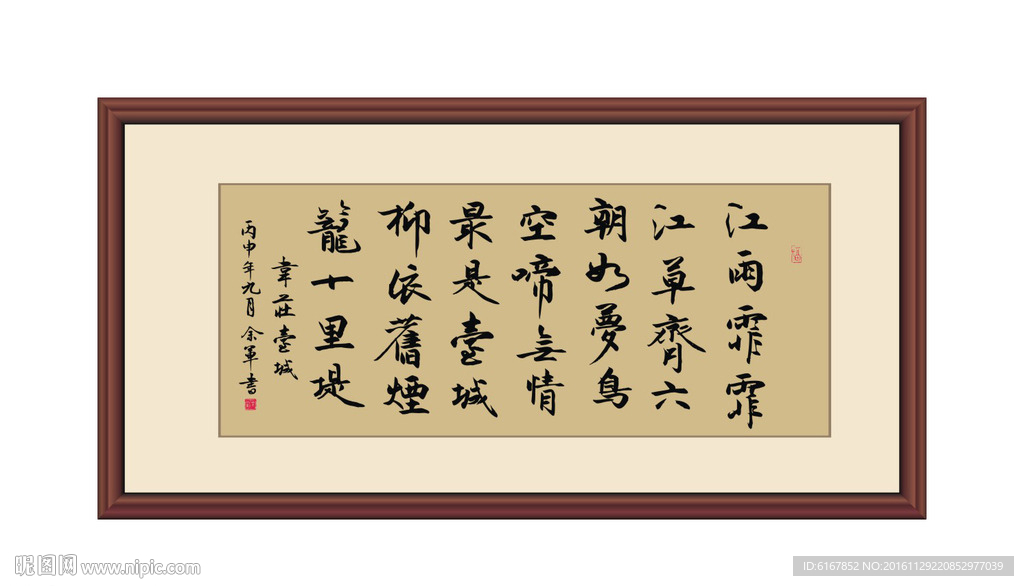 江雨霏霏
江草齊六
朝如夢鳥
空啼無情
最是臺城
柳依舊煙
籠十里堤
韋莊臺城
丙申年九月余軍書
昵图网 www.nipic.com
ID:6167852 NO:20161129220852977039